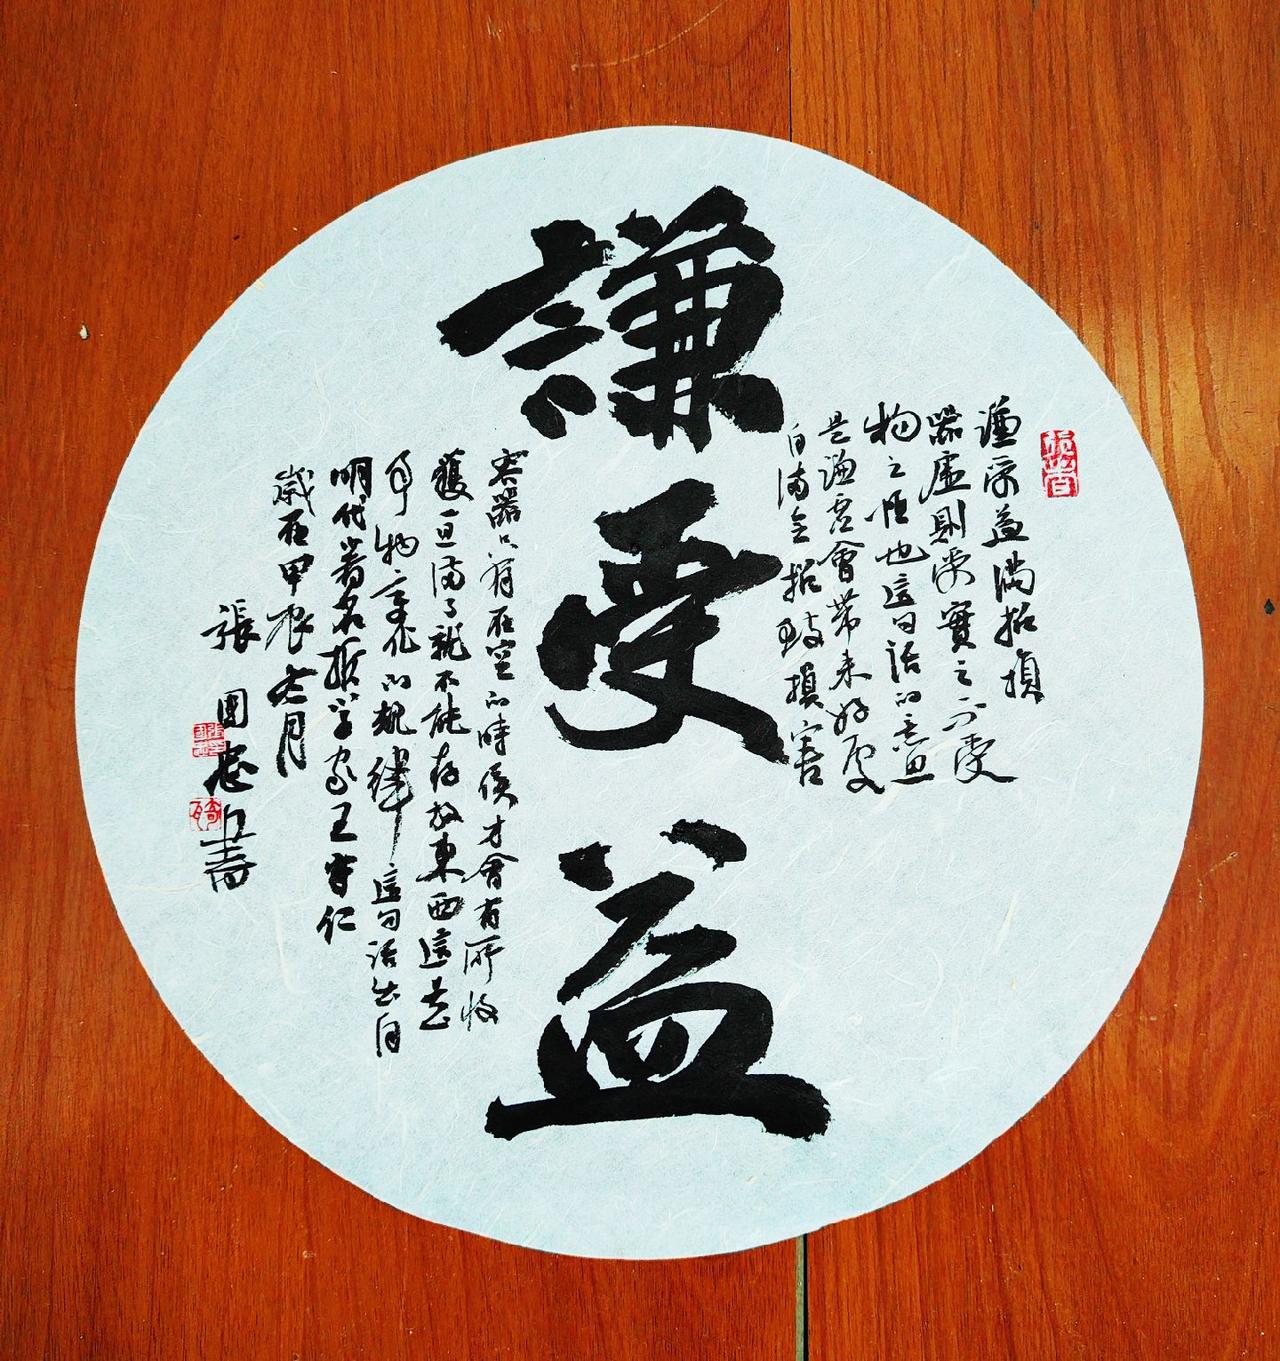 謙受益
謙受益滿招損
器虛則受實之不受
物之恒也這句話的意
是謙虛會帶來好處
自滿會招致損害
容器只有在空的時候才會有所收
獲一旦滿了就不能存放東西這是
事物變化的規律這句話出自
明代著名哲學家王守仁
歲在甲辰冬月
張國
書